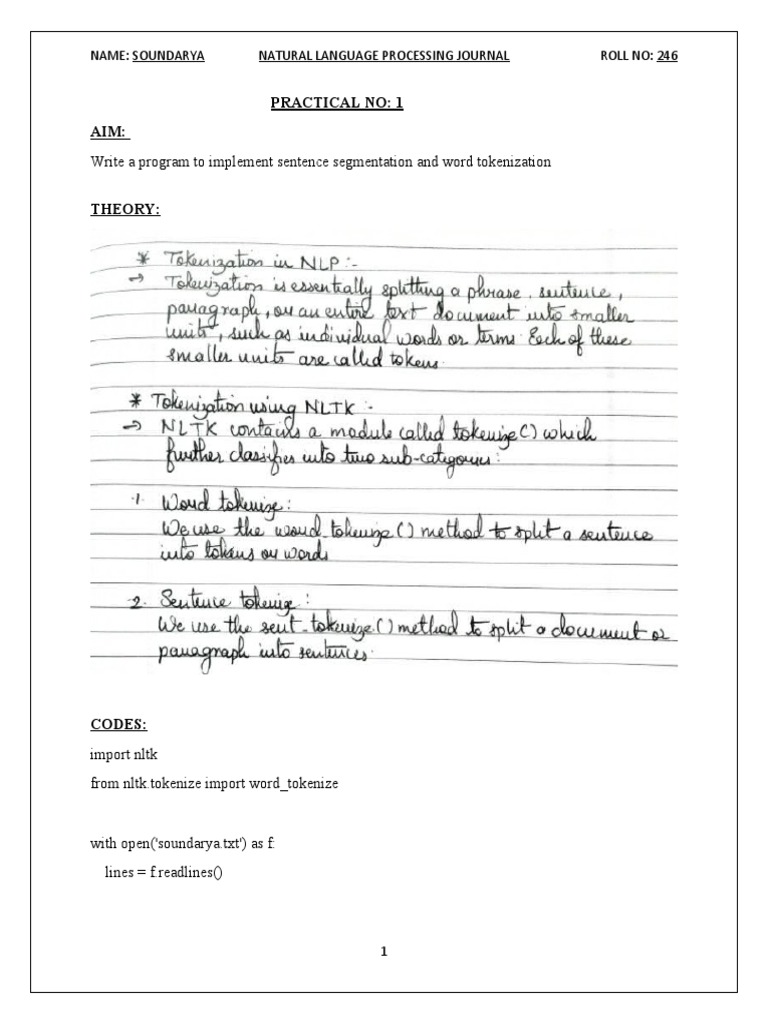 NAME: SOUNDARYA NATURAL LANGUAGE PROCESSING JOURNAL ROLL NO: 246
PRACTICAL NO: 1
AIM:
Write a program to implement sentence segmentation and word tokenization
THEORY:
* Tokenization in NLP :-
→ Tokenization is essentially splitting a phrase, sentence,
paragraph, or an entire text document into smaller
units, such as individual words or terms. Each of these
smaller units are called tokens.
* Tokenization using NLTK :-
→ NLTK contains a module called tokenize() which
further classifies into two sub-categories:
1. Word tokenize:
We use the word_tokenize() method to split a sentence
into tokens or words
2. Sentence tokenize:
We use the sent_tokenize() method to split a document or
paragraph into sentences.
CODES:
import nltk
from nltk.tokenize import word_tokenize
with open('soundarya.txt') as f:
lines = f.readlines()
1